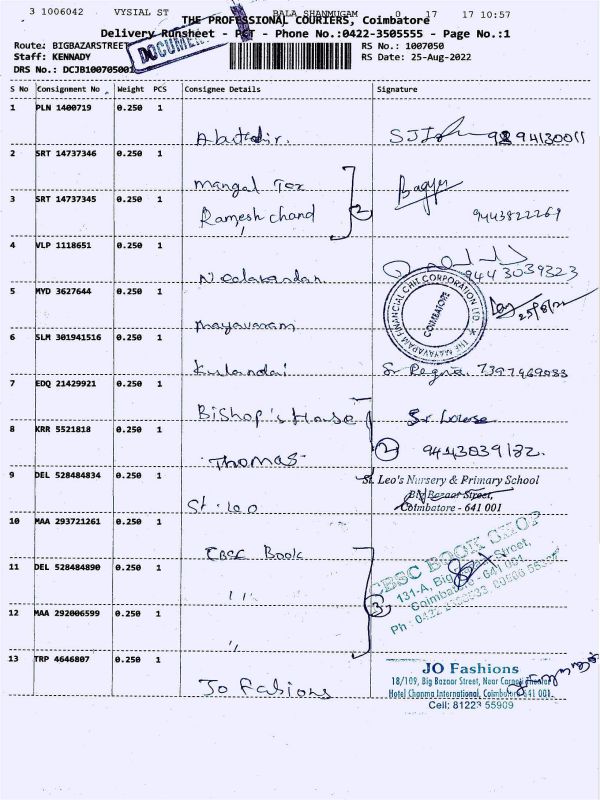 3 1006042 VYSIAL ST BALA SHANMUGAM 0 17 17 10:57
THE PROFESSIONAL COURIERS, Coimbatore
Delivery Runsheet - PCT - Phone No.:0422-3505555 - Page No.:1
Route: BIGBAZARSTREET RS No.: 1007050
Staff: KENNADY RS Date: 25-Aug-2022
DRS No.: DCJB100705001
S No Consignment No Weight PCS Consignee Details Signature
1 PLN 1400719 0.250 1
2 SRT 14737346 0.250 1
Mangal Tex
3 SRT 14737345 0.250 1
Ramesh chand 2 9443822269
4 VLP 1118651 0.250 1
9443039323
5 MYD 3627644 0.250 1
THE MAYAVARAM FINANCIAL CHIT CORPORATION LTD.
COIMBATORE
25/8/22
Mayavaram
6 SLM 301941516 0.250 1
Kulandai
7 EDQ 21429921 0.250 1
Bishop's House
8 KRR 5521818 0.250 1
2 9443039182.
Thomas
9 DEL 528484834 0.250 1
St. Leo's Nursery & Primary School
Big Bazaar Street,
Coimbatore - 641 001
St. Leo
10 MAA 293721261 0.250 1
CBSC Book
11 DEL 528484890 0.250 1
CBSC BOOK SHOP
131-A, Big Street,
641 001
,,
3
12 MAA 292006599 0.250 1
,,
13 TRP 4646807 0.250 1
JO Fashions
18/109, Big Bazaar Street, Near
Hotel Channma International, Coimbatore 641 001.
Cell: 81223 55909
Jo Fashions